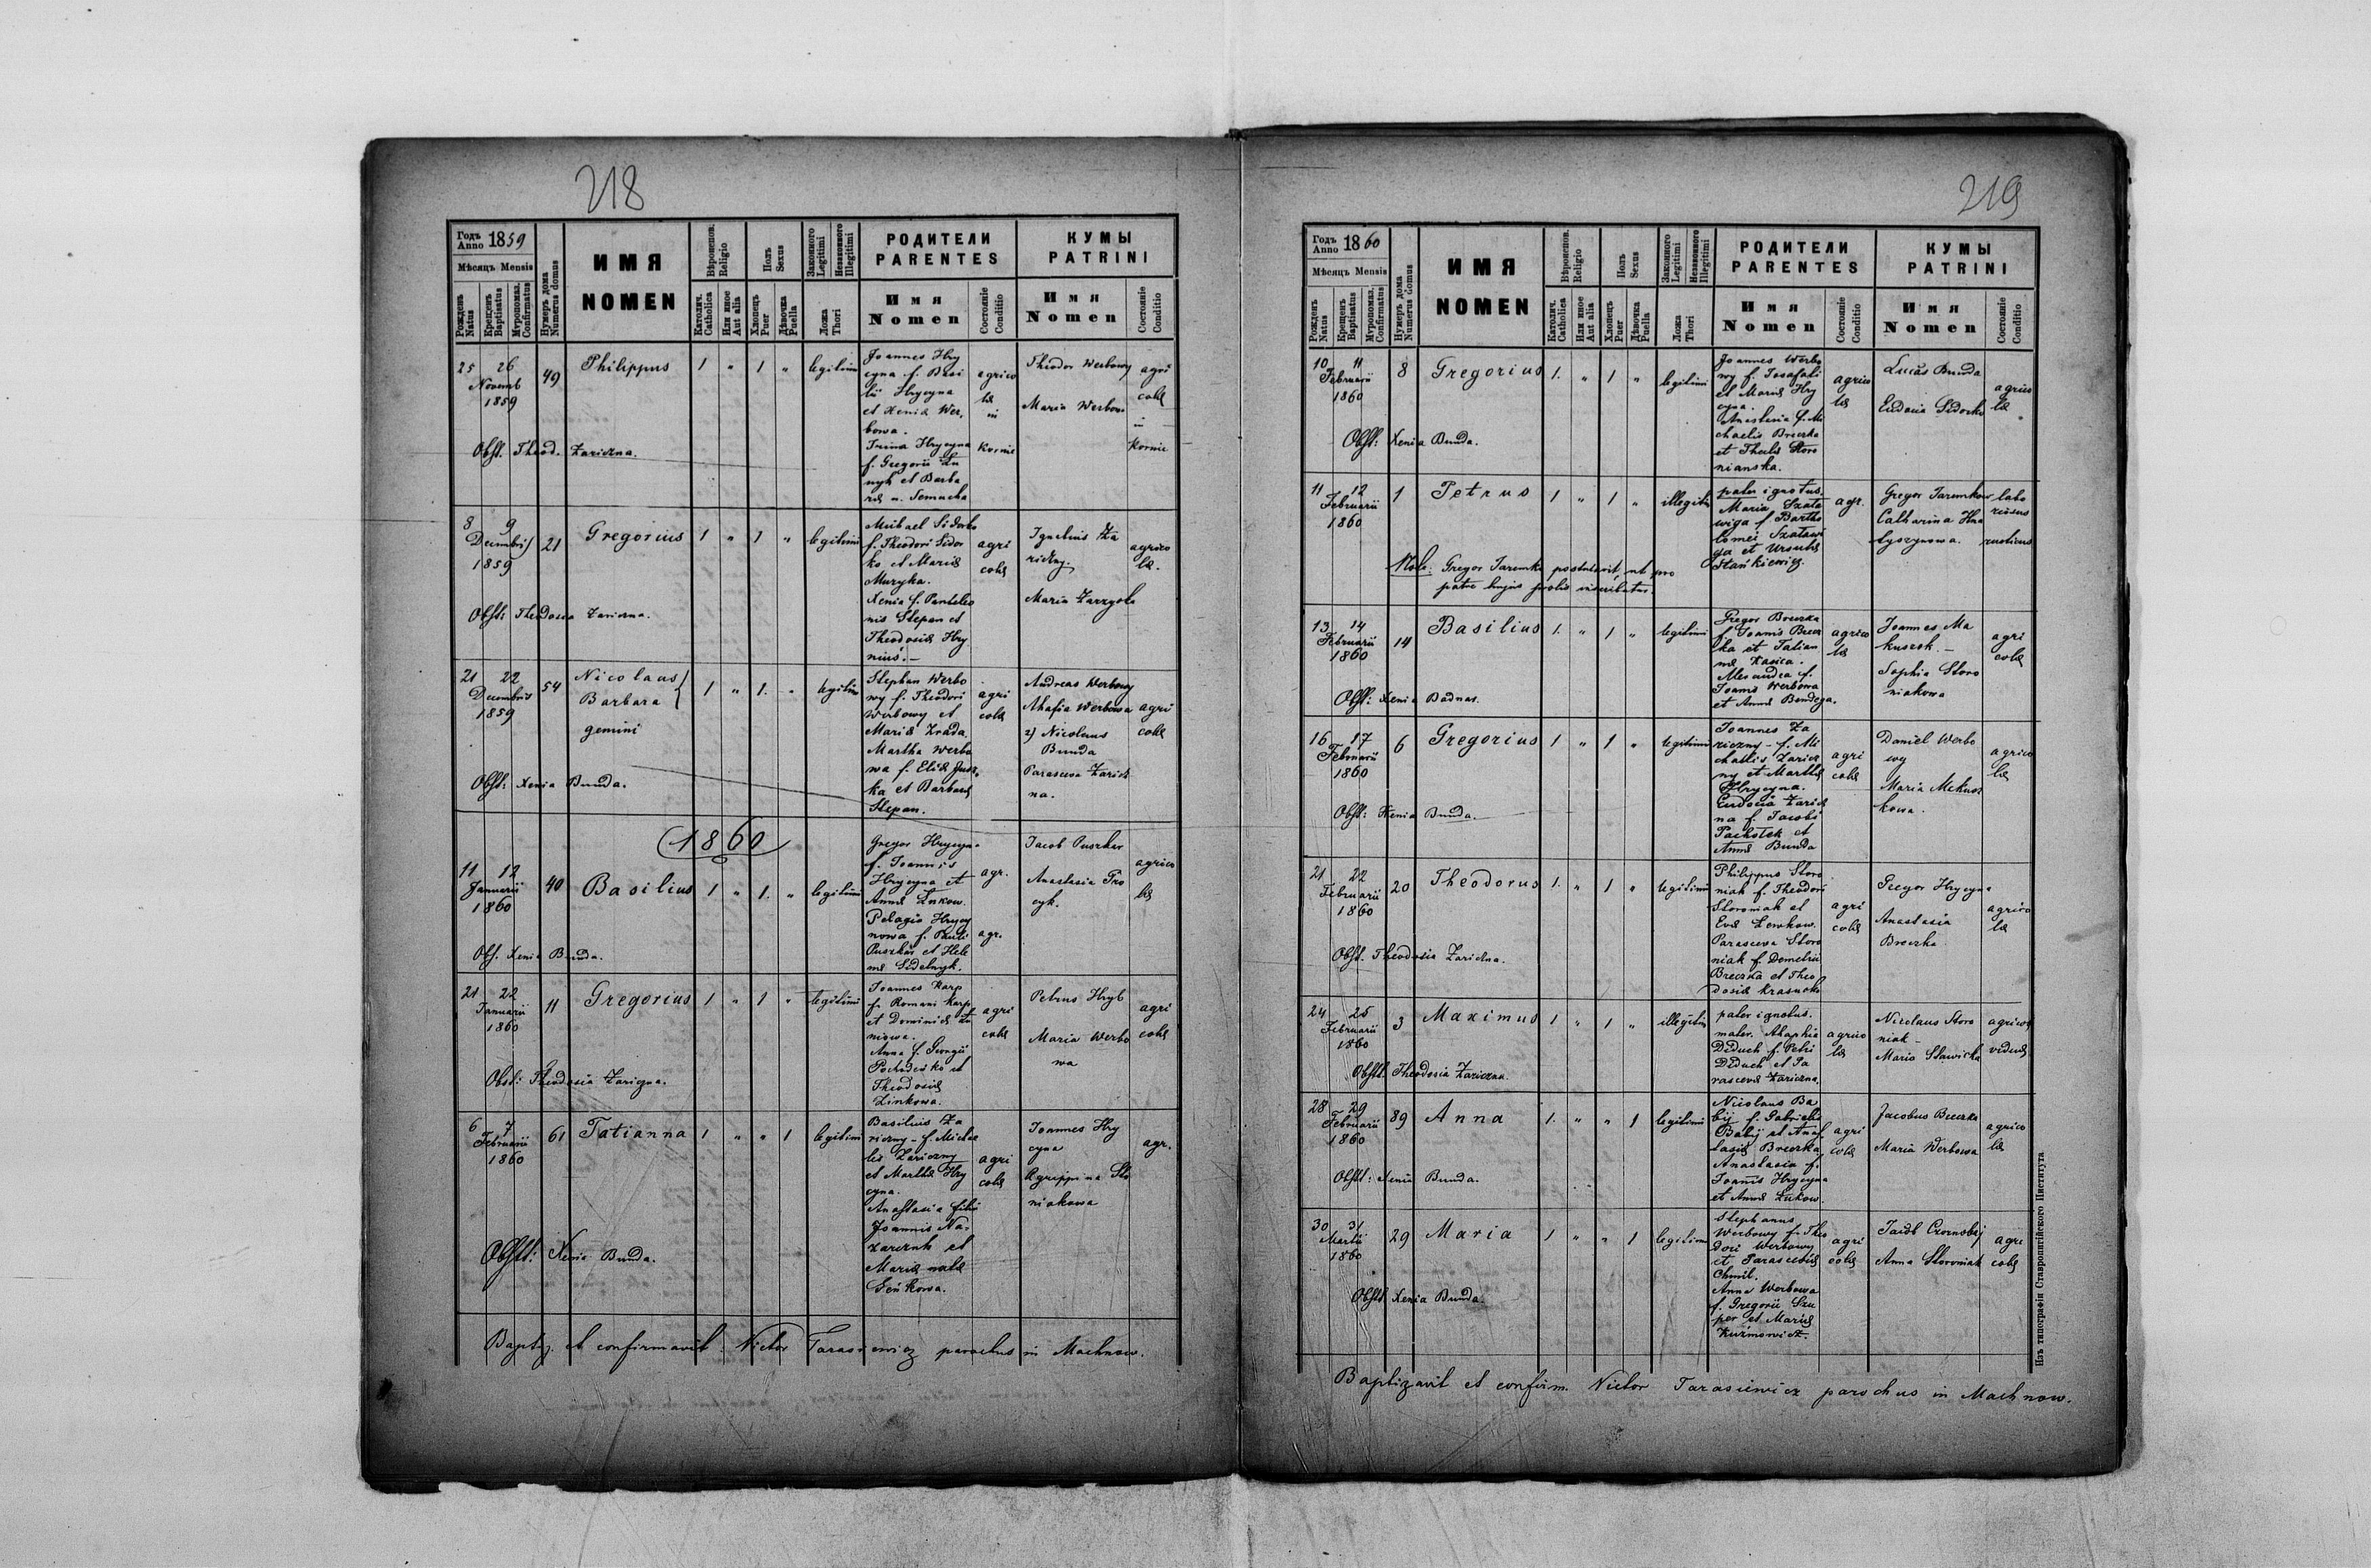 218
Годъ Anno 1859
Мѣсяцъ Mensis
Рожденъ Natus
Крещенъ Baptisatus
Мѵропомаз. Confirmatus
Нумеръ дома Numerus domus
ИМЯ
NOMEN
Вѣроисповѣд. Religio
Католич. Catholica
Или иное Aut alia
Полъ Sexus
Хлопецъ Puer
Дѣвочка Puella
Законного Legitimi
Незаконного Illegitimi
Ложа Thori
РОДИТЕЛИ
PARENTES
Имя
Nomen
Состояніе Conditio
КУМЫ
PATRINI
Имя
Nomen
Состояніе Conditio
25 26
Novemb
1859
49
Philippus
1 " 1 "
legitimi
Joannes Hry
cyna f. Basi
lii Hrycyna
et Xeniæ Wer,
bowa.
Irina Hrycyna
f. Gregorii
et Barba
agrico
læ
in
Kornie
Theodor Werbowy
Maria Werbow
agri
colæ
in
Kornie
Obst. Theod. Zariczna.
8 9
Decembris
1859
21
Gregorius
1 " 1 "
legitimi
Michael Sidorko
f. Theodori Sidor
ko et Mariæ
Muzyka.
Xenia f. Panteleo
nis Stepan et
Theodosiæ Hry
agri
colæ
Ignatius Za
riczny.
Maria
agrico
læ.
Obst: Theodosia Zariczna.
21 22
Decembris
1859
54
Nicolaus
Barbara
gemini
1 " 1. "
legitimi
Stephan Werbo
wy f. Theodori
Werbowy et
Mariæ Zrada.
Martha Werbo
wa f. Eliæ
ka et Barbaræ
Stepan.
agri
colæ
Andreas Werbowy
Ahafia Werbowa
2) Nicolaus
Bunda
Parasceva Zaricz
na.
agri
colæ
Obst: Xenia Bunda.
1860
11 12
Januarii
1860
40
Basilius
1 " 1. "
legitimi
Gregor Hrycyna
f. Joannis
Hrycyna et
Annæ Łukow.
Pelagia Hrycy
nowa f. Pauli
Puszkar et Hele
næ
agr.
agr.
Jacob Puszkar
Anastasia Pro
cyk.
agrico
læ
Obst. Xenia Bunda.
21 22
Januarii
1860
11
Gregorius
1 " 1 "
legitimi
Joannes Karp
f. Romani Karp
et Dominicæ
Anna f. Georgii
et
Theodosiæ
Zinkowa.
agri
colæ
Petrus Hryb
Maria Werbo
wa
agri
colæ
Obst: Theodosia Zariczna.
6 7
Februarii
1860
61
Tatianna
1 " " 1
legitimi
Basilius Za
riczny - f. Micha
lis Zariczny
et Marthæ Hry
cyna.
Anastasia filia
Joannis Na-
zarczuk et
Mariæ natæ
Seńkowa.
agri
colæ
Joannes Hry
cyna
Agrippina Sto
niakowa
agr.
Obstt: Xenia Bunda.
Baptiz. et confirmavit: Victor Tarasiewicz parochus in Machnow.
219
Годъ Anno 1860
Мѣсяцъ Mensis
Рожденъ Natus
Крещенъ Baptisatus
Мѵропомаз. Confirmatus
Нумеръ дома Numerus domus
ИМЯ
NOMEN
Вѣроисповѣд. Religio
Католич. Catholica
Или иное Aut alia
Полъ Sexus
Хлопецъ Puer
Дѣвочка Puella
Законного Legitimi
Незаконного Illegitimi
Ложа Thori
РОДИТЕЛИ
PARENTES
Имя
Nomen
Состояніе Conditio
КУМЫ
PATRINI
Имя
Nomen
Состояніе Conditio
10 11
Februarii
1860
8
Gregorius
1. " 1 "
legitimi
Joannes Werbo
wy f. Josafati
et Mariæ Hry
cyna.
Anastasia f. Mi
chaelis Breczka
et Theclæ Storo
nianska.
agrico
læ
Lucas Bunda
Eudocia Sidorko
agrico
læ
Obst: Xenia Bunda.
11 12
Februarii
1860
1
Petrus
1 " 1 "
illegitimi
pater ignotus.
Maria Szata
wiga f Bartho
lomei Szatawi
ga et Ursulæ
Stańkiewicz.
agr.
Gregor Jaremkow
Catharina Hna
tyszynowa.
rusticus
Nota: Gregor Jaremko postulavit, ut pro
patre hujus prolis inscribatur.
13 14
Februarii
1860
14
Basilius
1. " 1 "
legitimi
Gregor Breczka
f. Joannis Brecz
ka et Tatian
næ
Alexandra f.
Joannis Werbowa
et Annæ
agrico
læ
Joannes Ma
kuszek. -
Sophia Storo
niakowa
agri
colæ
Obst: Xenia Badnar.
16 17
Februarii
1860
6
Gregorius
1 " 1 "
legitimi
Joannes Za
riczny - f. Mi
chaelis Zaricz
ny et Marthæ
Hrycyna.
Eudocia Zaricz
na f. Jacobi
et
Annæ Bunda
agri
colæ
Daniel Werbo
wy
Maria
kowa.
agrico
læ
Obst: Xenia Bunda.
21 22
Februarii
1860
20
Theodorus
1. " 1 "
legitimi
Philippus Storo
niak f. Theodori
Storoniak et
Evæ Lewkow.
Parasceva Storo
niak f. Demetrii
Breczka et Theo
dosiæ
agri
colæ
Gregor Hrycyna
Anastasia
Breczka
agrico
læ
Obst. Theodosia Zariczna.
24 25
Februarii
1860
3
Maximus
1 " 1 "
illegitimi
pater ignotus.
mater. Ahaphia
Diduch f. Petri
Diduch et Pa
rascevæ Zariczna.
agrico
læ
Nicolaus Storo
niak -
Maria Stawicka
agricola
vidua
Obstt. Theodosia Zariczna.
28 29
Februarii
1860
89
Anna
1. " " 1
legitimi
Nicolaus Ba
bij f. Gabrielis
Babij et Anas
tasiæ Breczka
Anastasia f.
Joannis Hrycyna
et Annæ Łukow.
agri
colæ
Jacobus Breczka
Maria Werbowa
agrico
læ
Obstt: Xenia Bunda.
30 31
Martii
1860
29
Maria
1 " " 1
legitimi
Stephanus
Werbowy f. Theo
dori Werbowy
et Parascevæ
Chmil.
Anna Werbowa
f. Gregorii Szu
per et Mariæ
Kuźmowicz.
agri
colæ
Jacob Czornobaj
Anna Storoniak
agri
colæ
Obstt. Xenia Bunda.
Baptizavit et confirm. Victor Tarasiewicz parochus in Machnow.
Изъ типографіи Ставропигійского Института